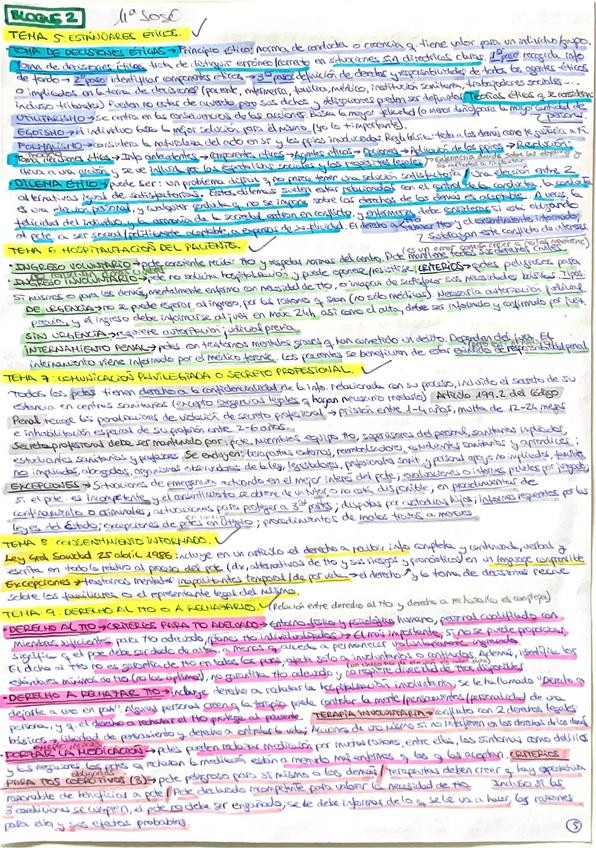 BLOQUE 2 Mª JOSÉ
TEMA 5: ESTÁNDARES ÉTICOS.
TOMA DE DECISIONES ÉTICAS → Principio ético: norma de conducta o creencia q tiene valor para un individuo/grupo.
Toma de decisiones éticas: trata de distinguir erróneo/correcto en situaciones sin directrices claras. 1º paso recogida info
de fondo → 2º paso identificar componentes éticos → 3º paso definición de derechos y responsabilidades de todos los agentes éticos
o implicados en la toma de decisiones (paciente, enfermería, familia, médico, institución sanitaria, trabajadores sociales
incluso tribunales) Pueden no estar de acuerdo, pero sus dchos y obligaciones pueden ser definidos. Teorías éticas q se consideran:
UTILITARISMO → se centra en las consecuencias de las acciones. Busca la mayor felicidad (o menor daño) para la mayor cantidad de personas.
EGOÍSMO → el individuo busca la mejor solución para él mismo (yo lo + importante).
FORMALISMO → considera la naturaleza del acto en sí y los ppios involucrados. Regla básica: trata a los demás como te gustaría a ti.
Tomar decisiones éticas → Info antecedentes → componentes éticos → Agentes éticos → Opciones → Aplicación de los ppios → Resolución.
lleva a una acción y se ve influida por las expectativas sociales y los requisitos legales
DILEMA ÉTICO → puede ser: un problema difícil y no parece tener una solución satisfactoria / Una elección entre 2
alternativas igual de satisfactorias. Estos dilemas suelen estar relacionados con el control de la conducta
felicidad del individuo y la armonía de la sociedad entran en conflicto, y enfermería debe
(es un error común creer q no los mantiene)
TEMA 6: HOSPITALIZACIÓN DEL PACIENTE.
· INGRESO VOLUNTARIO → pcte consiente recibir tto y respetar normas del centro. Pcte mantiene todos sus derechos
· INGRESO INVOLUNTARIO → pcte no solicita hospitalización y puede oponerse/resistirse. CRITERIOS → pctes peligrosos para
sí mismos o para los demás, mentalmente enfermo con necesidad de tto, o incapaz de satisfacer sus necesidades básicas. Tipos:
DE URGENCIA → no se puede esperar al ingreso, por las razones q sean (no sólo médicas) Necesaria autorización judicial
previa, y el ingreso debe informarse al juez en max 24h, así como el alta, debe ser informado y confirmado por juez.
SIN URGENCIA → requiere autorización judicial previa.
INTERNAMIENTO PENAL → pctes con trastornos mentales graves q han cometido un delito. Dependen del juez. El
internamiento viene informado por el médico forense. los pacientes se benefician de estar eximidos de responsabilidad penal
TEMA 7: COMUNICACIÓN PRIVILEGIADA O SECRETO PROFESIONAL.
Todos los pctes tienen derecho a la confidencialidad de la info. relacionada con su proceso, incluido el secreto de su
estancia en centros sanitarios (excepto exigencias legales q hagan necesario revelarlo) Artículo 199.2 del Código
Penal recoge las penalizaciones de violación de secreto profesional → prisión entre 1-4 años, multa de 12-24 meses
e inhabilitación especial de su profesión entre 2-6 años.
Secreto profesional debe ser mantenido por: pcte, miembros equipo tto, supervisores del personal, sanitarios implicados
estudiantes sanitarios y profesores. Se excluyen: terapeutas externos, normalizadores, estudiantes sanitarios y aprendices
no implicados, abogados, organismos observadores de la ley, legisladores, profesionales sanit y personal apoyo no implicados, familia
EXCEPCIONES → Situaciones de emergencia actuando en el mejor interés del pcte, evaluaciones o informes pedidos por juzgado,
si el pcte es incompetente y el consentimiento se obtiene de un tutor o no está disponible, en procedimientos de
confinamiento o criminales, actuaciones para proteger a 3ªs partes, disputas por custodia hijos, informes requeridos por las
leyes del Estado; excepciones de pctes en litigio; procedimientos de malos tratos a menores
TEMA 8: CONSENTIMIENTO INFORMADO.
Ley Gral Sanidad 25 abril 1986: incluye en un artículo el derecho a recibir: info completa y continuada, verbal y
escrita en todo lo relativo al proceso del pcte (dx, alternativas de tto y sus riesgos y pronósticos) en un lenguaje comprensible
Excepciones → trastornos mentales incapacitantes temporal/de por vida → el derecho y la toma de decisiones recae
sobre los familiares o el representante legal del mismo.
TEMA 9: DERECHO AL TTO O A RECHAZARLO. (Relación entre derecho al tto y derecho a rechazarlo es compleja)
· DERECHO AL TTO → CRITERIOS PARA TTO ADECUADO → entorno físico y psicológico humano, personal cualificado con
miembros suficientes para tto adecuado, planes tto individualizados → El más importante, si no se puede proporcionar,
significa q el pcte debe ser dado de alta a menos q acceda a permanecer voluntariamente ingresado.
El dcho al tto no es garantía de tto en todos los pctes, aplica solo a involuntarios o confinados. Además, identifica los
estándares mínimos de tto (no los óptimos), no garantiza tto adecuado y no requiere directrices de tto disponibles
· DERECHO A RECHAZAR TTO → incluye derecho a rechazar la hospitalización involuntaria, se le ha llamado "derecho a
dejarte a uno en paz". Algunas personas creen q la terapia puede controlar la mente/pensamientos/personalidad de una
persona, y q el derecho a rechazar el tto protege al paciente. TERAPIA INVOLUNTARIA → conflicto con 2 derechos legales
básicos: libertad de pensamiento y derecho a controlar la vida/acciones de uno mismo si no interfieren en los derechos de los demás
· RECHAZAR LA MEDICACIÓN → pctes pueden rechazar medicación por muchas razones, entre ellas, los síntomas como delirios
y los negativos. los pctes q rechazan la medicación están a menudo más enfermos q los q la aceptan. CRITERIOS
PARA TTOS COERCITIVOS (3) → pcte peligroso para sí mismo o los demás / terapeutas deben creer q hay esperanza
razonable de beneficiar a pcte / Pcte declarado incompetente para valorar la necesidad de tto. Incluso si las
3 condiciones se cumplen, el pcte no debe ser engañado, se le debe informar de lo q se le va a hacer, las razones
para ello y sus efectos probables.
5